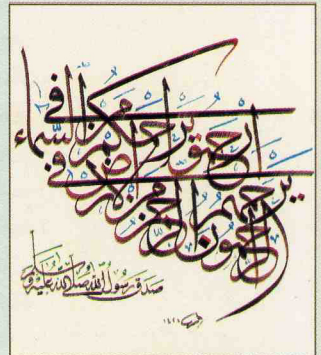 الراحمون يرحمهم الرحمن
ارحموا من في الأرض
يرحمكم من في السماء
صدق رسول الله صلى الله عليه وسلم